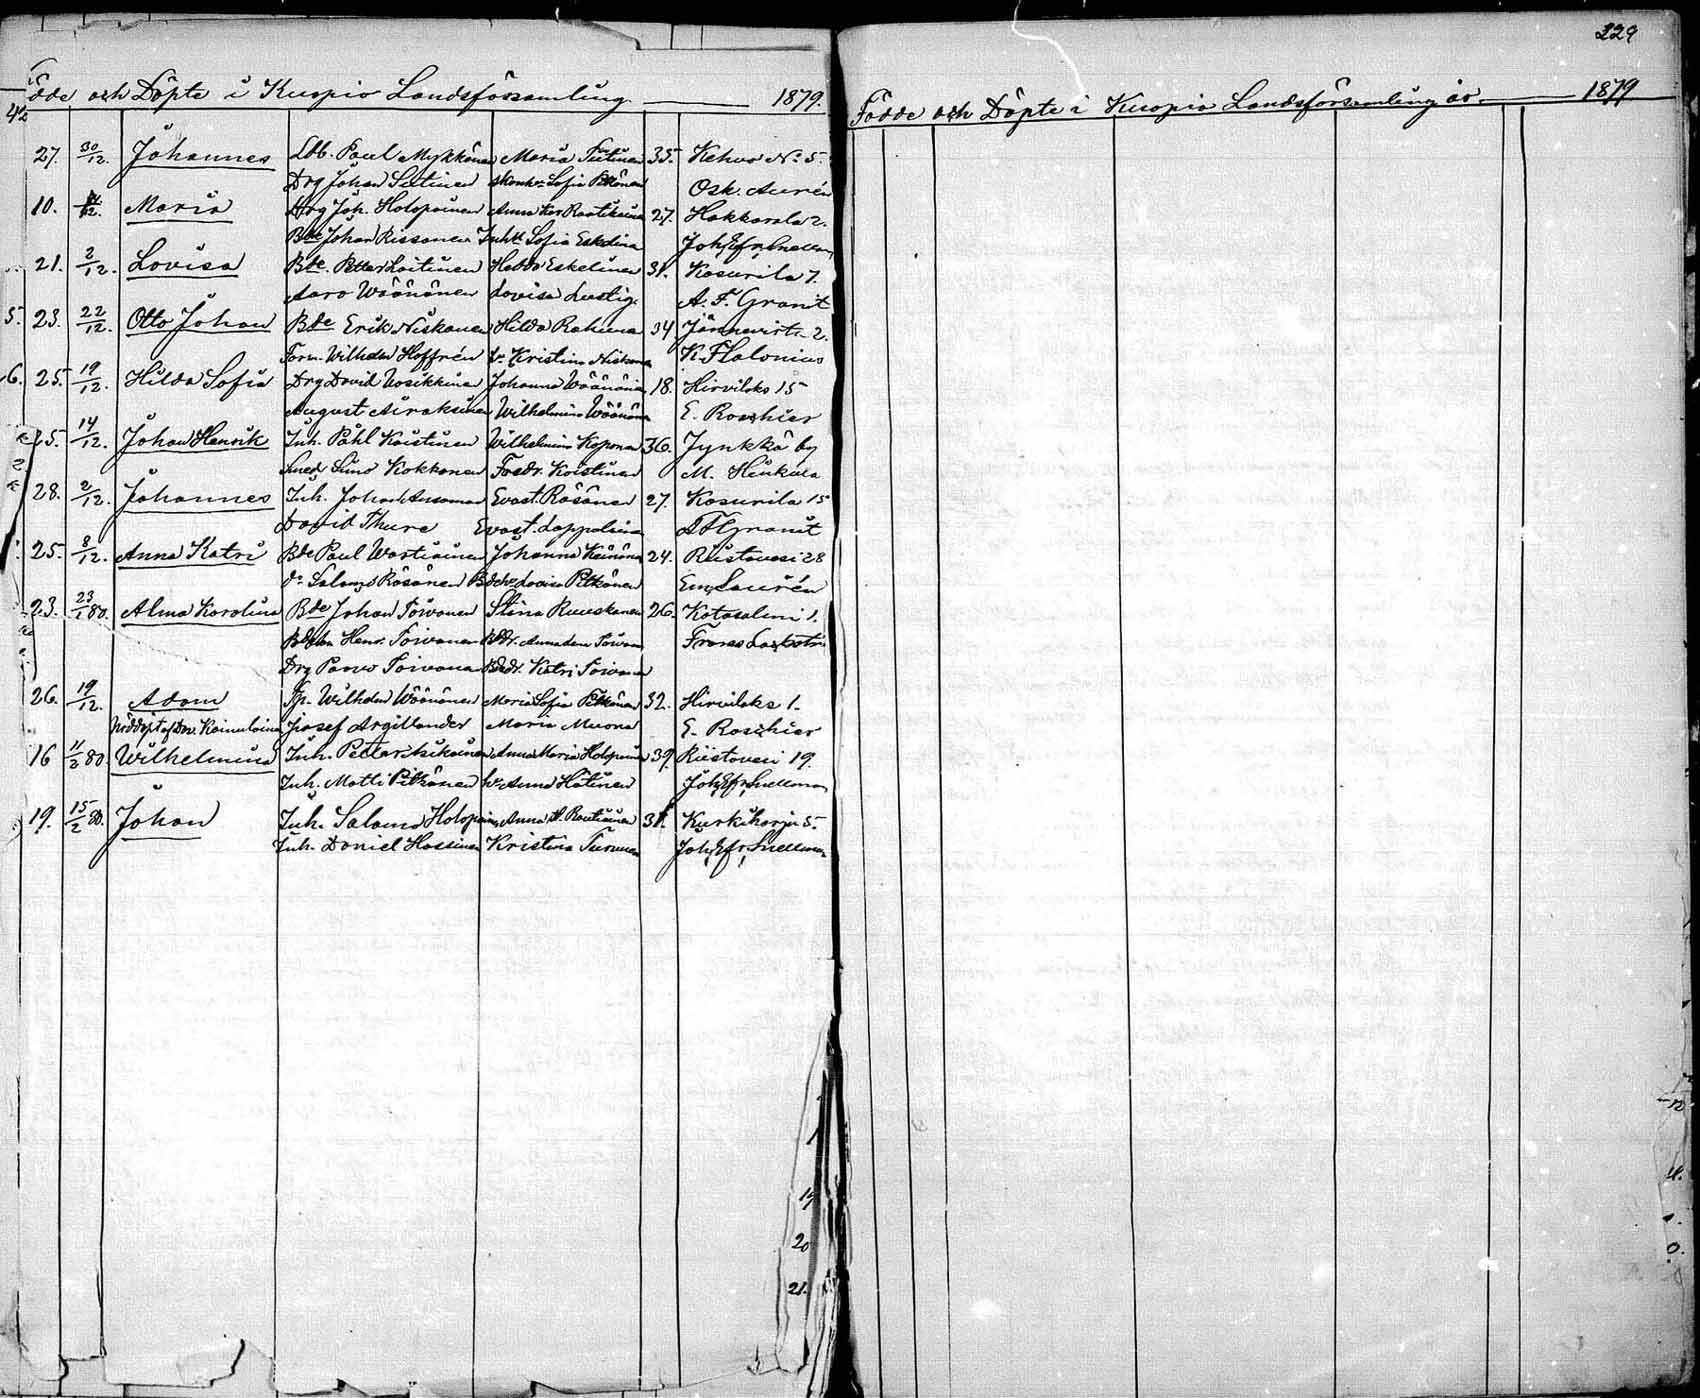 229
Födde och Döpte i Kuopio Landsförsamling 1879.
27. 30/12. Johannes Ldb. Paul Mykkänen Maria Tiitinen 35. Kehvo No 5.
Drg Johan Sutinen Sofia Pitkänen Osk. Aurén
10. /12. Maria Drg Joh. Holopainen Anna Kar Raatikaina 27. Hakkarala 2.
Bde Johan Rissanen Inh Sofia Eskelina Joh. Efr. Snellman
21. 2/12. Lovisa Bde. Petter Laitinen Hedda Eskelinen 31. Kasurila 7.
Aaro Wäänänen Lovisa Lustig A. F. Granit
5. 23. 22/12. Otto Johan Bde Erik Niskanen Hilda Rahuna 34 Jännevirta 2.
Wilhelm Hoffrén Kristina Niskane K. F. Calonius
6. 25. 19/12. Hilda Sofia Drg David Wosikkina Johanna Wäänänen 18. Hirvilaks 15
August Airaksinen Wilhelmina Wäänänen E. Roschier
25. 14/12. Johan Henrik Inh. Påhl Koistinen Wilhelmina Kopona 36. Jynkkä by
Smed Simo Kokkonen Koistinen M. Hinkula
28. 2/12. Johannes Inh. Johan Ansaman Evast. Räsänen 27. Kasurila 15
David Thure Evast. Lappalaina A F Granit
25. 8/12. Anna Katri Bde Paul Wartiainen Johanna Keinänen 24. Riistavesi 28
do Salomo Räsänen Lovisa Pitkänen Em. Laurén
23. 23/1 80. Alma Karolina Bde Johan Toivanen Stina Ruuskanen 26. Kotasalmi 1.
Henr. Toivanen Frans
Drg Paavo Toivana Katri Toivana
26. 19/12. Adam Tp. Wilhelm Wäänänen Maria Sofia Pitkänen 32. Hirvilaks 1.
Nöddöpt af Dav. Kainulaina Josef Argillander Maria Muona E. Roschier
16 11/2 80. Wilhelmina Inh. Petter Anna Maria Holopainen 39. Riistavesi 19.
Inh. Matti Pitkänen hu Anna Hätinen Joh. Efr. Snellman
19. 15/2 80. Johan Inh. Salomo Holopain Anna Rautiaina 31. Kurkiharju 5.
Inh. Daniel Hassinen Kristina Turunen Joh. Efr. Snellman
20
21.
Födde och Döpte i Kuopio Landsförsamling år 1879